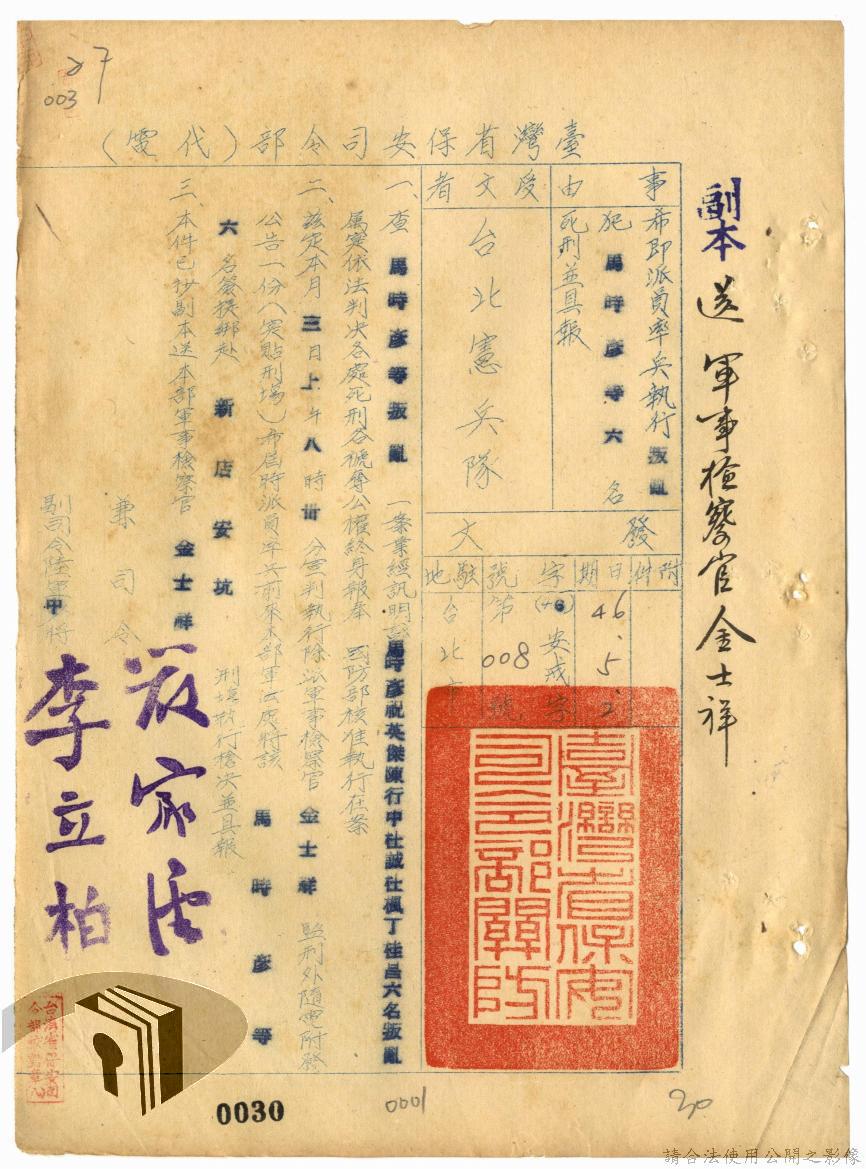 27
003
副本 送 軍事檢察官金士祥
臺灣省保安司令部(代電)
事由
希即派員率兵執行叛亂
犯馬時彥等六名
死刑並具報
受文者
台北憲兵隊
發文
附件
日期
46.5.2.
字號
(46)安戒字
第008號
駐地
台北市
一、查馬時彥等叛亂一案業經訊明
馬時彥祝英傑陳行中杜誠杜楓丁桂昌六名叛亂
屬實依法判決各處死刑各褫奪公權終身報奉 國防部核准執行在案
二、茲定本月三日上午八時卅分宣判執行除派軍事檢察官金士祥監刑外隨電附發
公告一份(實貼刑場)希屆時派員率兵前來本部軍法處將該馬時彥等
六名簽提綁赴新店安坑刑場執行槍決並具報
三、本件已抄副本送本部軍事檢察官金士祥
兼司令
嚴家淦
副司令陸軍中將
李立柏
臺灣省保安司令部關防
0030
0001
30
請合法使用公開之影像